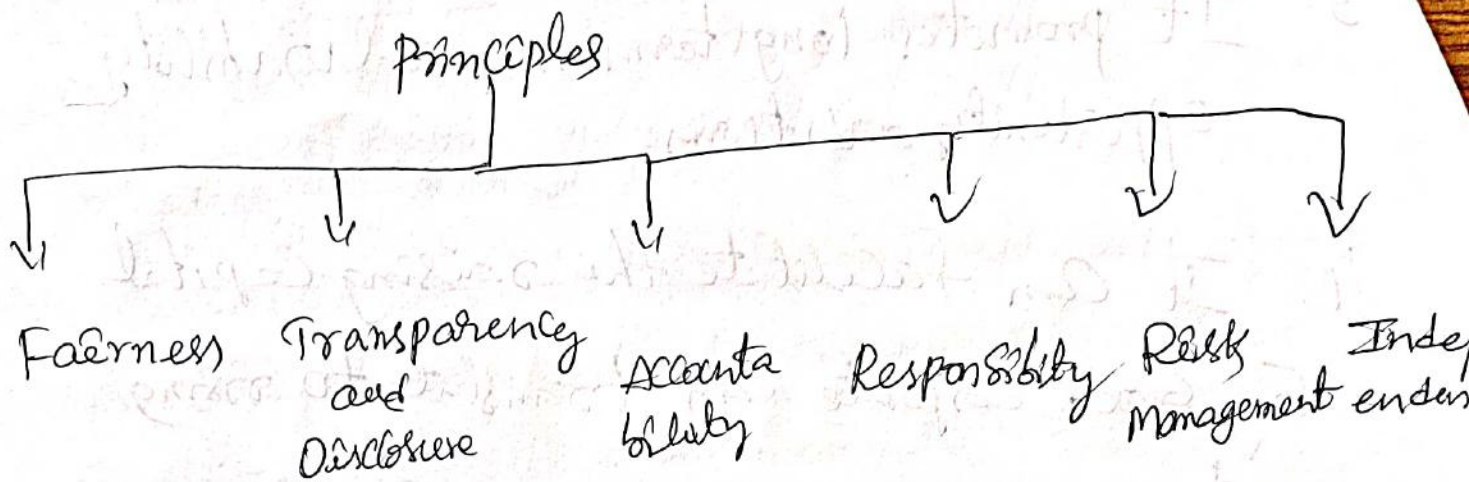 Principles
Fairness
Transparency
and
Disclosure
Accounta
bility
Responsibility
Risk
Management
Indep
enden